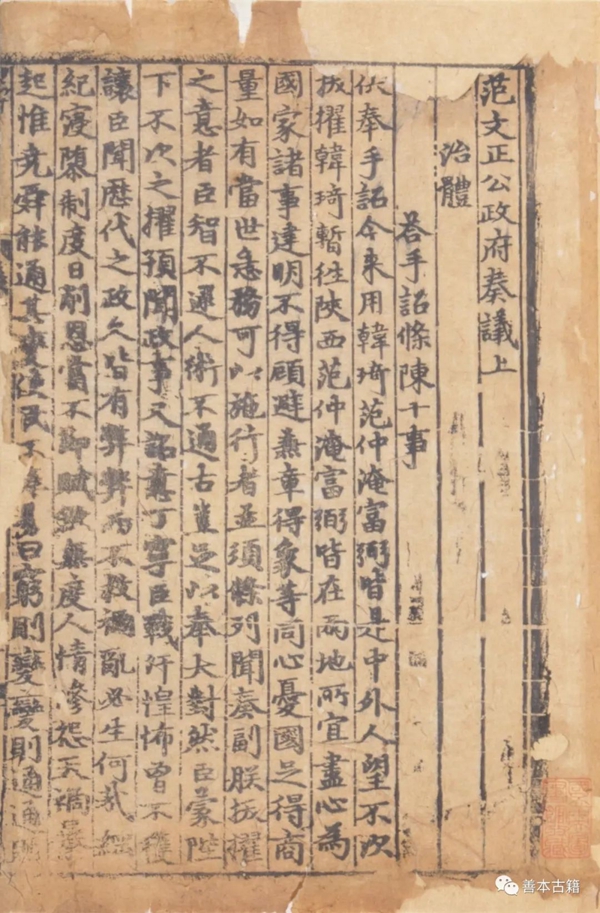 范文正公政府奏議上
治體
荅手詔條陳十事
伏奉手詔今來用韓琦范仲淹富弼皆是中外人望不次
拔擢韓琦暫往陝西范仲淹富弼皆在兩地所宜盡心為
國家諸事建明不得顧避兼章得象等同心憂國足得商
量如有當世急務可以施行者並須條列聞奏副朕拔擢
之意者臣智不逮人術不通古豈足以奉大對然臣蒙陛
下不次之擢預聞政事又詔意丁寧臣戰汗惶怖曾不獲
讓臣聞歷代之政久皆有弊弊而不救禍亂必生何哉綱
紀寖隳制度日削恩賞不節賦歛無度人情慘怨天禍暴
起惟堯舜能通其變使民不易曰窮則變變則通通
善本古籍